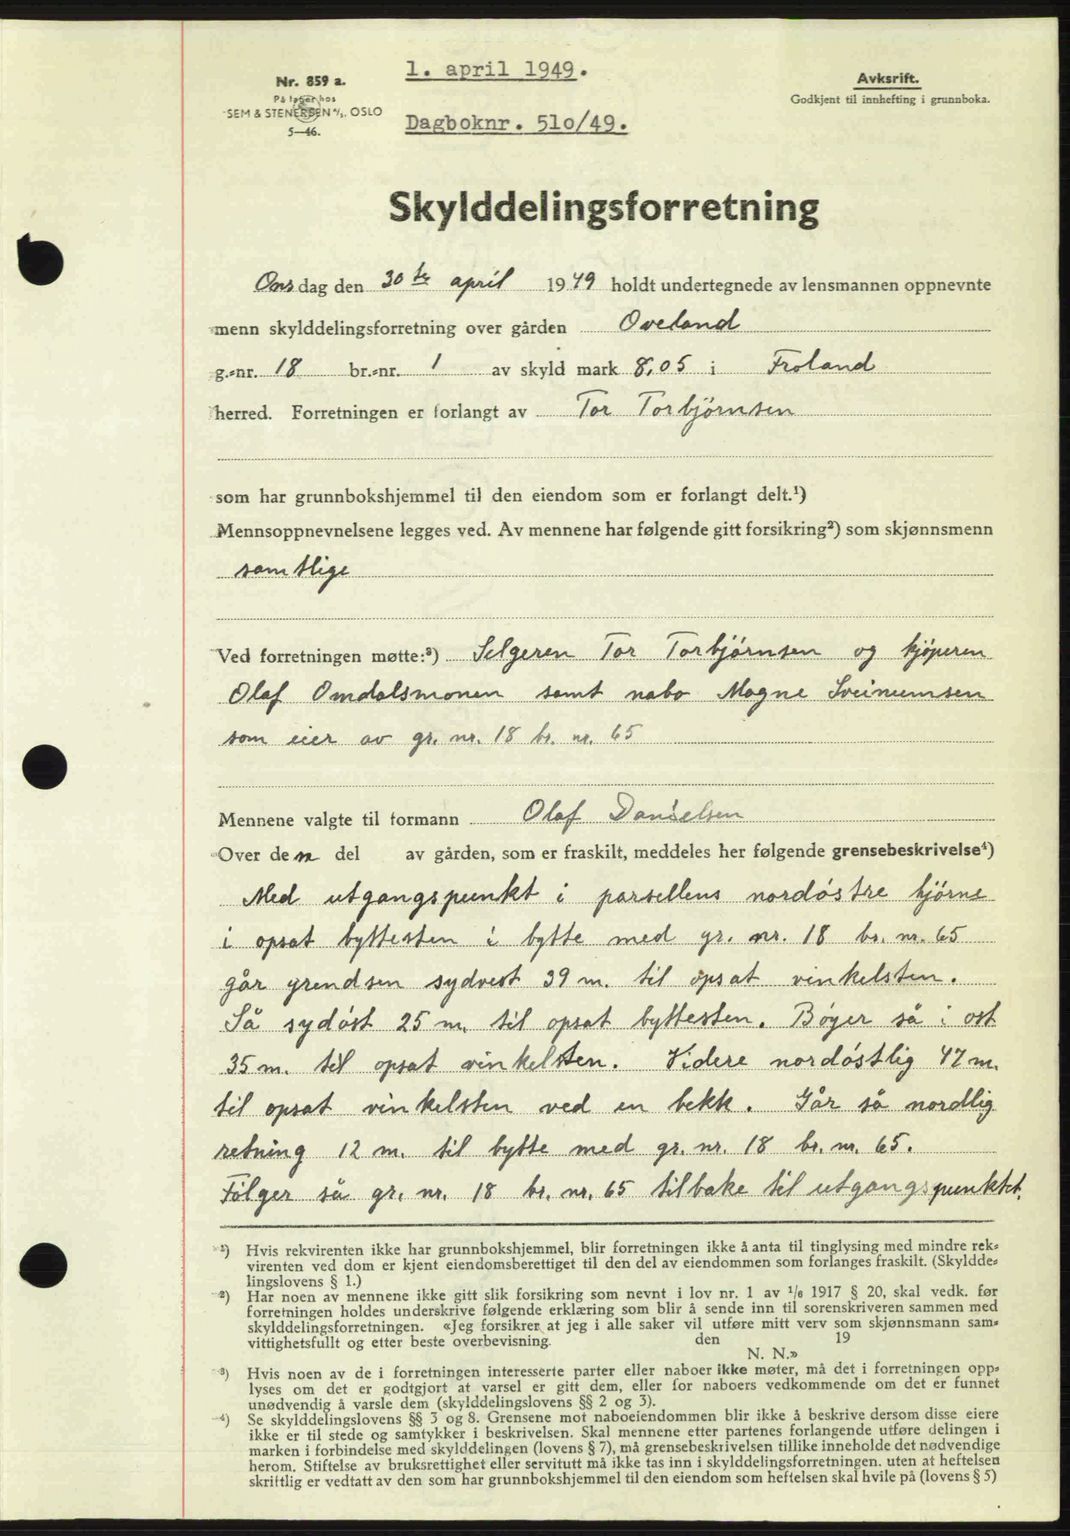 1. april 1949.
Nr. 859 a.
På lager hos
SEM & STENERSEN A/S, OSLO
5—46.
Dagboknr. 510/49.
Avksrift.
Godkjent til innhefting i grunnboka.
Skylddelingsforretning
Onsdag den 30te april 1949 holdt undertegnede av lensmannen oppnevnte
menn skylddelingsforretning over gården Oveland
g.-nr. 18 br.-nr. 1 av skyld mark 8,05 i Froland
herred. Forretningen er forlangt av Tor Torbjørnsen
som har grunnbokshjemmel til den eiendom som er forlangt delt.¹)
Mennsoppnevnelsene legges ved. Av mennene har følgende gitt forsikring²) som skjønnsmenn
samtlige
Ved forretningen møtte:³) Selgeren Tor Torbjørnsen og kjøperen
Olaf Omdalsmonen samt nabo Magne Sveinumsen
som eier av gr. nr. 18 br. nr. 65
Mennene valgte til formann Olaf Danielsen
Over den del av gården, som er fraskilt, meddeles her følgende grensebeskrivelse⁴)
Med utgangspunkt i parsellens nordøstre hjørne
i opsat byttesten i bytte med gr. nr. 18 br. nr. 65
går grendsen sydvest 39 m. til opsat vinkelsten.
Så sydøst 25 m. til opsat byttesten. Bøyer så i øst
35 m. til opsat vinkelsten. Videre nordøstlig 47 m.
til opsat vinkelsten ved en bekk. Går så nordlig
retning 12 m. til bytte med gr. nr. 18 br. nr. 65.
Følger så gr. nr. 18 br. nr. 65 tilbake til utgangspunktet.
¹) Hvis rekvirenten ikke har grunnbokshjemmel, blir forretningen ikke å anta til tinglysing med mindre rek-
virenten ved dom er kjent eiendomsberettiget til den del av eiendommen som forlanges fraskilt. (Skyldde-
lingslovens § 1.)
²) Har noen av mennene ikke gitt slik forsikring som nevnt i lov nr. 1 av 1/6 1917 § 20, skal vedk. før
forretningen holdes underskrive følgende erklæring som blir å sende inn til sorenskriveren sammen med
skylddelingsforretningen. «Jeg forsikrer at jeg i alle saker vil utføre mitt verv som skjønnsmann sam-
vittighetsfullt og etter beste overbevisning. den 19
N. N.»
³) Hvis noen av de i forretningen interesserte parter eller naboer ikke møter, må det i forretningen opp-
lyses om det er godtgjort at varsel er gitt dem, eller for naboers vedkommende om det er funnet
unødvendig å varsle dem (skylddelingslovens §§ 2 og 3).
⁴) Se skylddelingslovens §§ 3 og 8. Grensene mot naboeiendommen blir ikke å beskrive dersom disse eiere
ikke er til stede og samtykker i beskrivelsen. Skal mennene etter partenes forlangende utføre delingen i
marken i forbindelse med skylddelingen (lovens § 7), må grensebeskrivelsen tillike inneholde det nødvendige
herom. Stiftelse av bruksrettighet eller servitutt må ikke tas inn i skylddelingsforretningen. uten at heftelsen
skriftlig er vedtatt av den som har grunnbokshjemmel til den eiendom som heftelsen skal hvile på (lovens § 5)